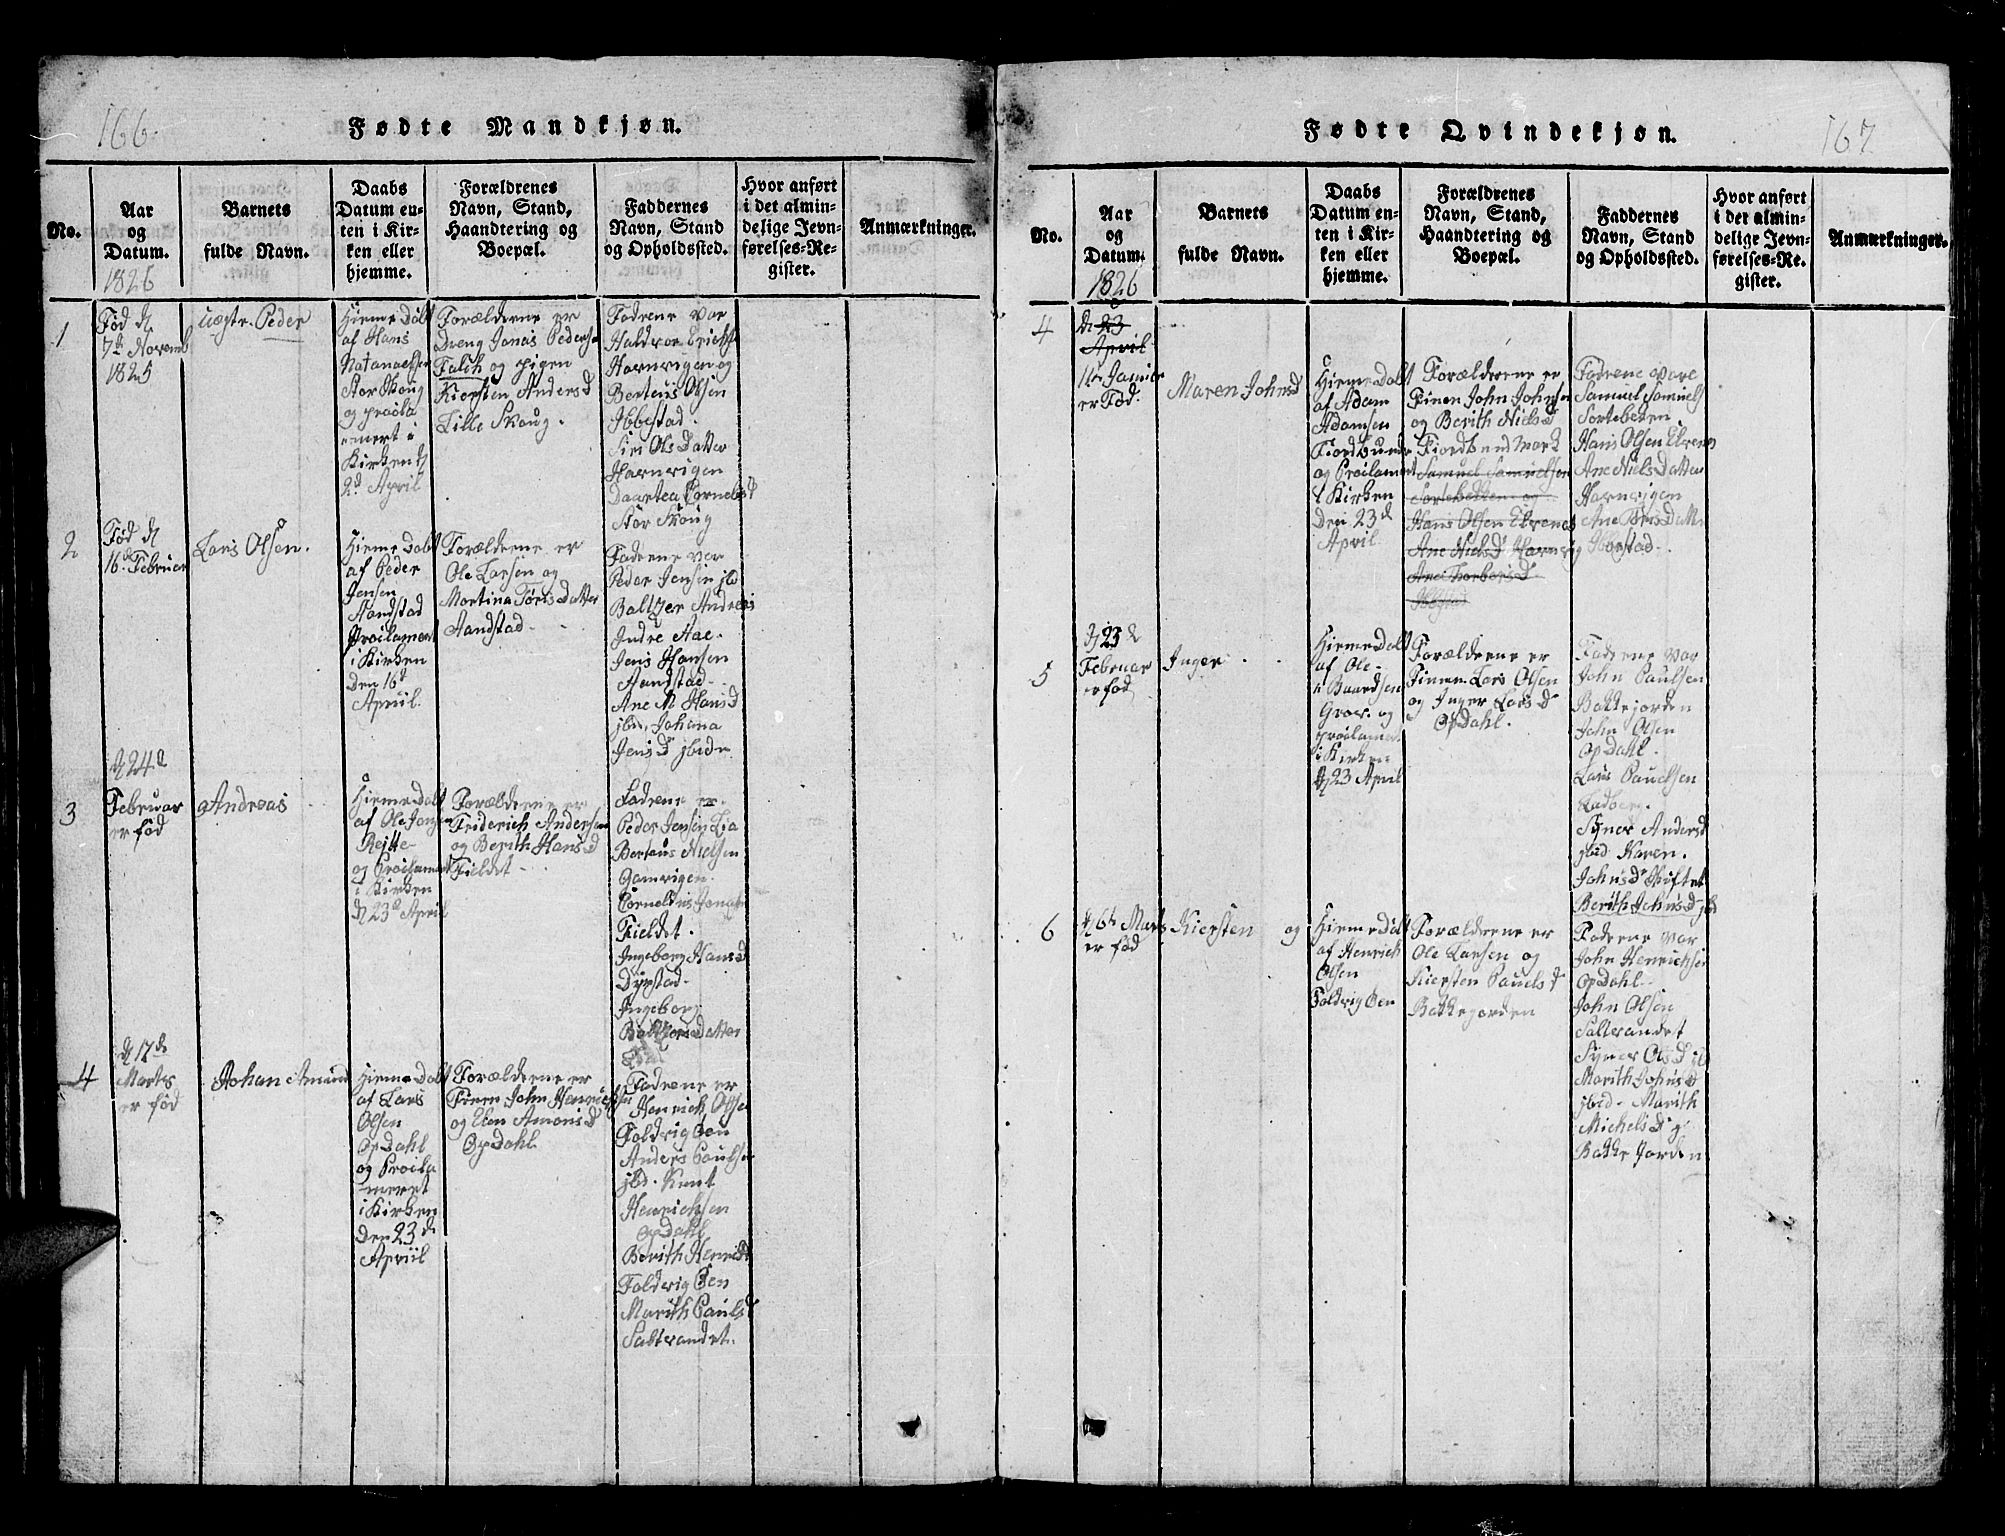 166.
Fødte Mandkjøn.
No.
Aar
og
Datum.
1826
Barnets
fulde Navn.
Daabs
Datum en-
ten i Kir-
ken eller
hjemme.
Forældrenes
Navn, Stand,
Haandtering og
Boepæl.
Faddernes
Navn, Stand
og Opholdssted.
Hvor anført
i det almin-
delige Jevn-
førelses-Re-
gister.
Anmærkninger.
1
Fød d
7de Novemb
1825
uægte. Peder
Hieme Døbt
af Hans
Natanaelsen
Stor Skoug
og procla
meret i
Kirken d
2d April
Forælderne er
Dreng Jonas Peders
Falch og pigen
Kiersten Andersd
Lille Skoug.
Fadrene var
Haldvor Erichs
Havnvigen og
Berteus Olsen
Ibbestad.
Siri Ols Datter
Havnvigen
Daartea Cornelisd
Stor Skoug
2
Fød d
16de Februar
Lars Olsen.
Hieme Døbt
af Peder
Jensen
Aandstad
Proclameret
i Kirken
Den 16d
Apriil.
Forælderne er
Ole Larsen og
Martina Tøris Datter
Aandstad
Fadrene var
Peder Jensen jbd
Baltzer Andreas
Indre Aae.
Jens Hansen
Aandstad
Ane M Hansd
jbd, Johana
Jensd jbide
3
d 24d
Februar
er fød
Andreas
Hieme Døbt
af Ole
og Proclameret
i Kirken
d 23d April
Forælderne er
Friderich Andersen
og Berith Hansd
Fieldet
Fadrene er
Peder Jensen Lia
Berteus Nielsen
Gamvigen.
Cornelius Jonas
Fieldet.
Ingeborg Hansd
Dyrstad.
Ingeborg
Baltzersdatter
4
d 17de
Marts
er fød
Johan Amund
Hieme Døbt
af Lars
Olsen
Opdahl
og Procla
meret
i Kirken
den 23d
Apriil
Forælderne er
Finen John Henrichsen
og Elen Amonsd
Opdahl
Fadrene er
Henrich Olsen
Foldvig Øen
Anders Paulsen
jbd. Knut
Henrichsen
Opdahl
Berith Henricd
Foldvig Øen
Marith Paulsd
Saltvandet.
167
Fødte Qvindekjøn.
No.
Aar
og
Datum.
1826
Barnets
fulde Navn.
Daabs
Datum en-
ten i Kir-
ken eller
hjemme.
Forældrenes
Navn, Stand,
Haandtering og
Boepæl.
Faddernes
Navn, Stand
og Opholdssted.
Hvor anført
i det almin-
delige Jevn-
førelses-Re-
gister.
Anmærkninger.
4
d 23
April
11te Januar
er Fød.
Maren Johnsd
Hieme Døbt
af Adam
Adamsen
Fiordbund
og Proclameret
i Kirken
Den 23d
April
Forælderne er
Finen John Johnsen
og Berith Nielsd
Fiordbundmark
Samuel Samuelsen
Sortebekken og
Hans Olsen Elvenes
Ane Nielsd Havnvig
Ane Thorborsd
Ibbestad
Fadrene vare
Samuel Samuels
Sortebeken
Hans Olsen Elvenes
Ane Niels Datter
Havnvigen
Ane Tørisdatter
Ibbestad.
5
d 23d
Februar
er fød
Inger
Hieme Døbt
af Ole
Baardsen
Grov. og
proclameret
i Kirken
d 23 April
Forælderne er
Finnen Lars Olsen
og Inger Larsd
Opdahl.
Fadrene var
John Paulsen
Bakkejorden
John Olsen
Opdahl.
Lars Paulsen
Ladberg.
Synev Andersd
jbd Karen.
Johnsd
Berith Johnsd jbd
6
d 6te Marts
er fød
Kiersten og
Hieme Døbt
af Henrich
Olsen
Foldvig Øen
Forælderne er
Ole Larsen og
Kiersten Paulsd
Bakkejorden
Fadrene var
John Henrichsen
Opdahl
John Olsen
Saltvandet
Synev Olsd jbd
Marith Johnsd
jbd. Marith
Michelsd
Bakkejorden